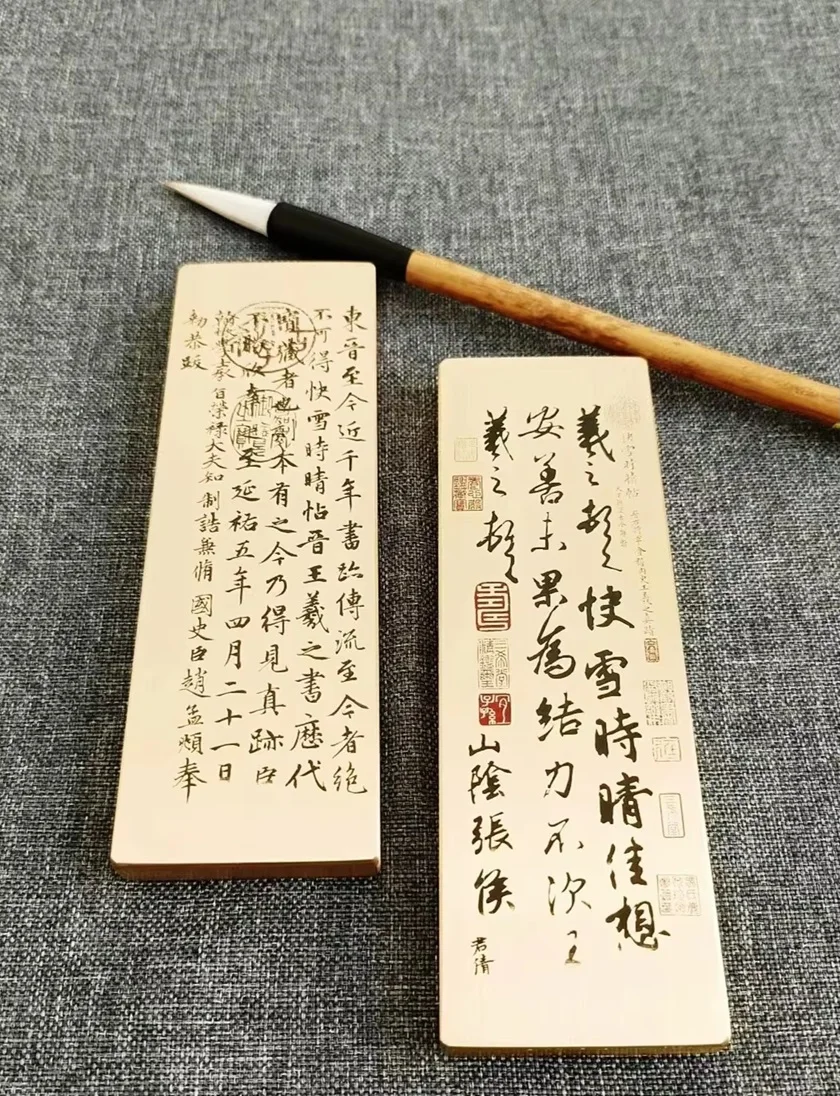 羲之頓首快雪時晴佳想
安善未果為結力不次王
羲之頓首 山陰張侯 君倩
東晉至今近千年書跡傳流至今者絕
不可得快雪時晴帖晉王羲之書歷代
寶藏者也刻本有之今乃得見真跡臣
不勝欣幸之至延祐五年四月二十一日
承旨榮祿大夫知制誥兼脩國史臣趙孟頫奉
勑恭跋